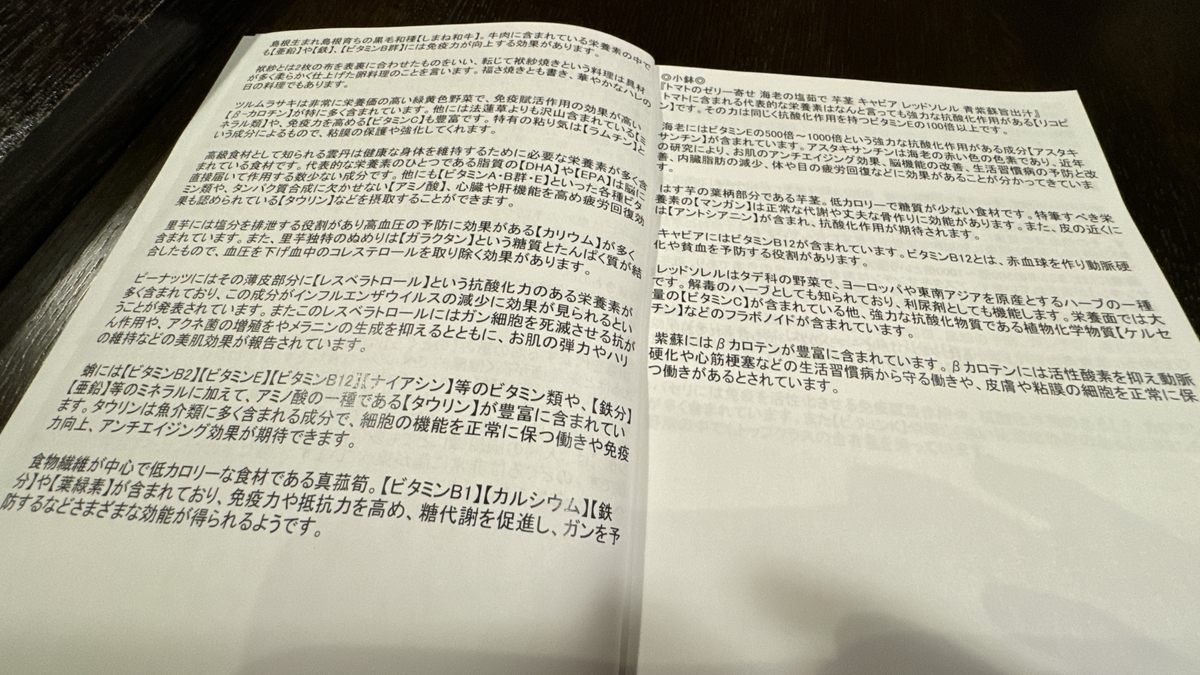 島根生まれ島根育ちの黒毛和種【しまね和牛】。牛肉に含まれている栄養素の中で
も【亜鉛】や【鉄】、【ビタミンB群】には免疫力が向上する効果があります。
袱紗とは2枚の布を表裏に合わせたものをいい、転じて袱紗焼きという料理は具材
が多く柔らかく仕上げた卵料理のことを言います。福さ焼きとも書き、華やかなハレの
日の料理でもあります。
ツルムラサキは非常に栄養価の高い緑黄色野菜で、免疫賦活作用の効果が高い、
【β-カロチン】が特に多く含まれています。他には法蓮草よりも沢山含まれている【ミ
ネラル類】や、免疫力を高める【ビタミンC】も豊富です。特有の粘り気は【ラムチン】と
いう成分によるもので、粘膜の保護や強化してくれます。
高級食材として知られる雲丹は健康な身体を維持するために必要な栄養素が多く含
まれている食材です。代表的な栄養素のひとつである脂質の【DHA】や【EPA】は脳に
直接届いて作用する数少ない成分です。他にも【ビタミンA・B群・E】といった各種ビタ
ミン類や、タンパク質合成に欠かせない【アミノ酸】、心臓や肝機能を高め疲労回復効
果も認められている【タウリン】などを摂取することができます。
里芋には塩分を排泄する役割があり高血圧の予防に効果がある【カリウム】が多く
含まれています。また、里芋独特のぬめりは【ガラクタン】という糖質とたんぱく質が結
合したもので、血圧を下げ血中のコレステロールを取り除く効果があります。
ピーナッツにはその薄皮部分に【レスベラトロール】という抗酸化力のある栄養素が
多く含まれており、この成分がインフルエンザウイルスの減少に効果が見られるとい
うことが発表されています。またこのレスベラトロールにはガン細胞を死滅させる抗が
ん作用や、アクネ菌の増殖をやメラニンの生成を抑えるとともに、お肌の弾力やハリ
の維持などの美肌効果が報告されています。
蛸には【ビタミンB2】【ビタミンE】【ビタミンB12】【ナイアシン】等のビタミン類や、【鉄分】
【亜鉛】等のミネラルに加えて、アミノ酸の一種である【タウリン】が豊富に含まれてい
ます。タウリンは魚介類に多く含まれる成分で、細胞の機能を正常に保つ働きや免疫
力向上、アンチエイジング効果が期待できます。
食物繊維が中心で低カロリーな食材である真菰筍。【ビタミンB1】【カルシウム】【鉄
分】や【葉緑素】が含まれており、免疫力や抵抗力を高め、糖代謝を促進し、ガンを予
防するなどさまざまな効能が得られるようです。
◎小鉢◎
『トマトのゼリー寄せ 海老の塩茹で 芋茎 キャビア レッドソレル 青紫蘇旨出汁』
トマトに含まれる代表的な栄養素はなんと言っても強力な抗酸化作用がある【リコピ
ン】です。その力は同じく抗酸化作用を持つビタミンEの100倍以上です。
海老にはビタミンEの500倍～1000倍という強力な抗酸化作用がある成分【アスタキ
サンチン】が含まれています。アスタキサンチンは海老の赤い色の色素であり、近年
の研究により、お肌のアンチエイジング効果、脳機能の改善、生活習慣病の予防と改
善、内臓脂肪の減少、体や目の疲労回復などに効果があることが分かってきていま
す。
はす芋の葉柄部分である芋茎。低カロリーで糖質が少ない食材です。特筆すべき栄
養素の【マンガン】は正常な代謝や丈夫な骨作りに効能があります。また、皮の近くに
は【アントシアニン】が含まれ、抗酸化作用が期待されます。
キャビアにはビタミンB12が含まれています。ビタミンB12とは、赤血球を作り動脈硬
化や貧血を予防する役割があります。
レッドソレルはタデ科の野菜で、ヨーロッパや東南アジアを原産とするハーブの一種
です。解毒のハーブとしても知られており、利尿剤としても機能します。栄養面では大
量の【ビタミンC】が含まれている他、強力な抗酸化物質である植物化学物質【ケルセ
チン】などのフラボノイドが含まれています。
紫蘇にはβカロテンが豊富に含まれています。βカロテンには活性酸素を抑え動脈
硬化や心筋梗塞などの生活習慣病から守る働きや、皮膚や粘膜の細胞を正常に保
つ働きがあるとされています。